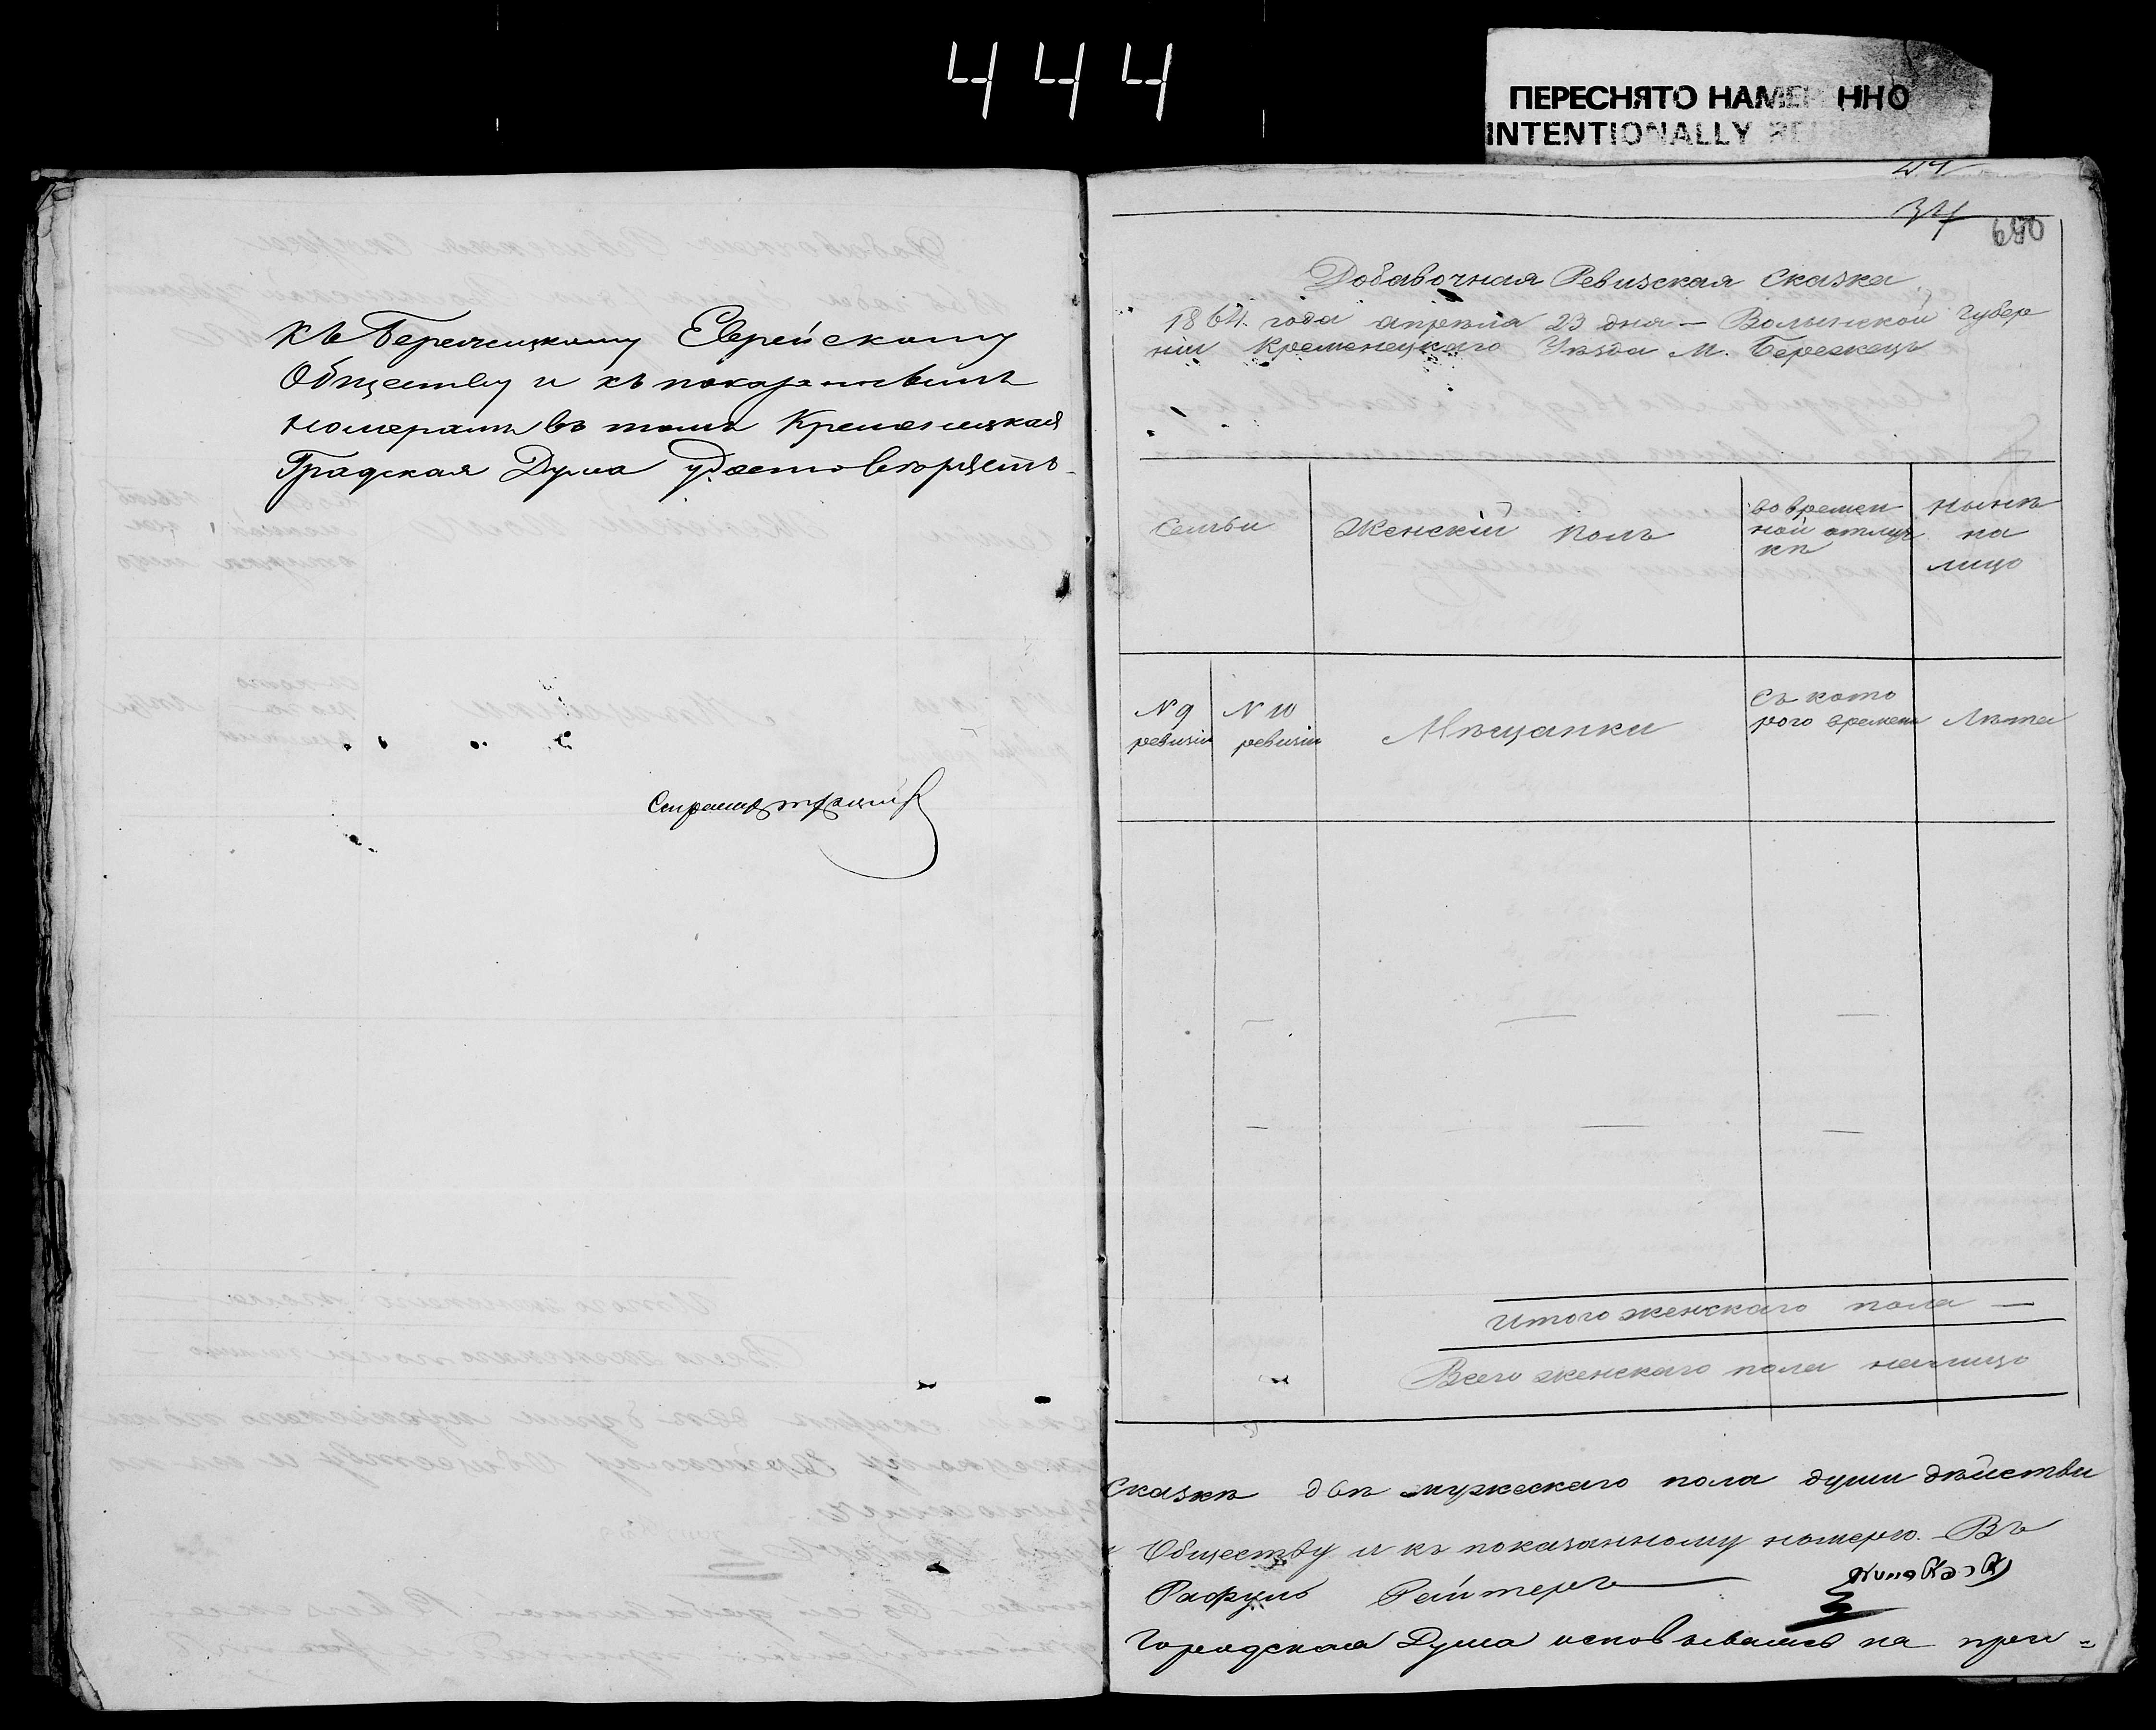 444
ПЕРЕСНЯТО НАМЕР ННО
INTENTIONALLY
къ Бережецкому Еврейскому
Обществу и къ показаннымъ
номерамъ въ томъ Кременецкая
Градская Дума удостовѣряетъ
34
Добавочная Ревизская Сказка
1864 года апрѣля 23 дня — Волынской Губер
ніи Кременецкаго Уѣзда М. Бережецъ
Семьи
Женскій полъ
во времен
ной отлуч
кѣ
нынѣ
на
лицо
N 9
ревизіи
N 10
ревизіи
Мѣщанки
Съ кото
рого времени
Лѣта
Итого женскаго пола —
Всего женскаго пола налицо
Сказкѣ двѣ мужескаго пола души дѣйстви
Обществу и къ показанному номеру. Въ
Рафуль Рейтеръ
Городская Дума основываясь на при=